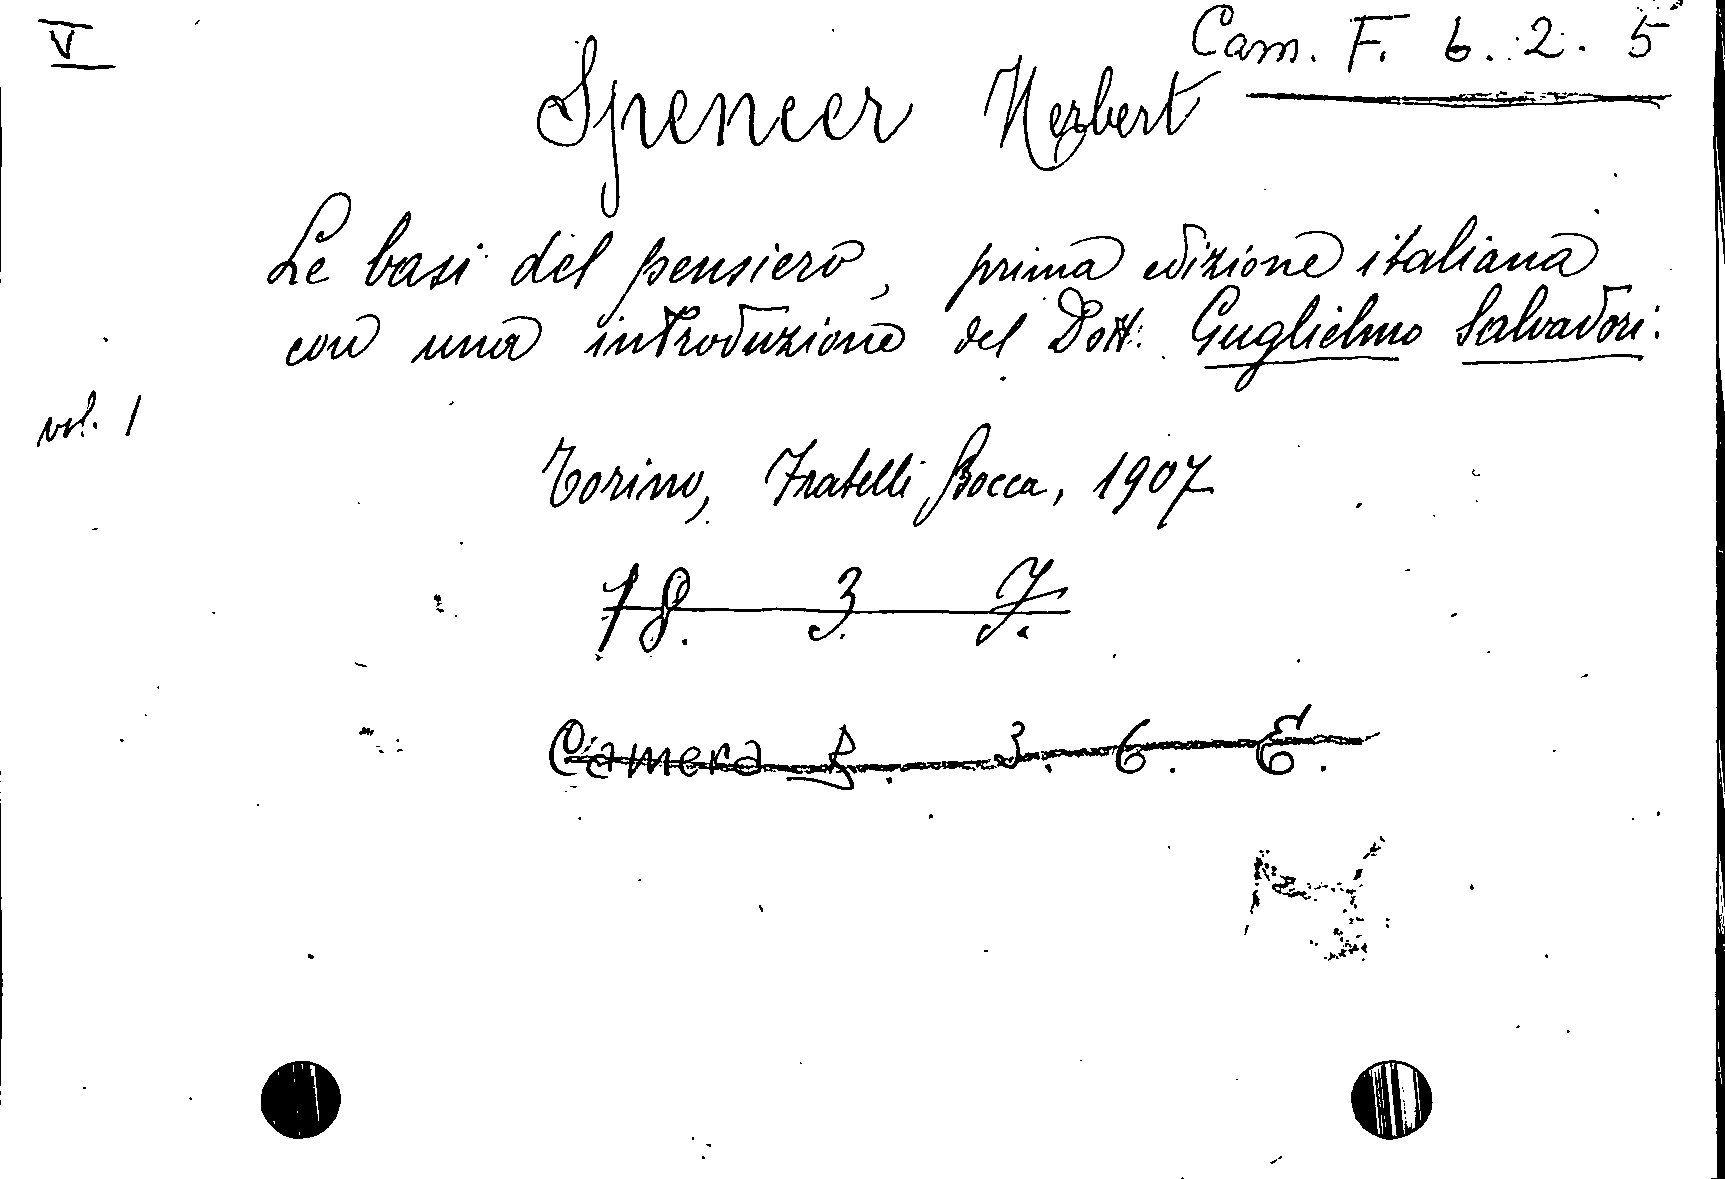 V
Cam. F. 6. 2. 5
Spencer Herbert
Le basi del pensiero, prima edizione italiana
con una introduzione del Dott: Guglielmo Salvadori:
vol. 1
Torino, Fratelli Bocca, 1907
18. 3. 7.
Camera 3. 6. E.